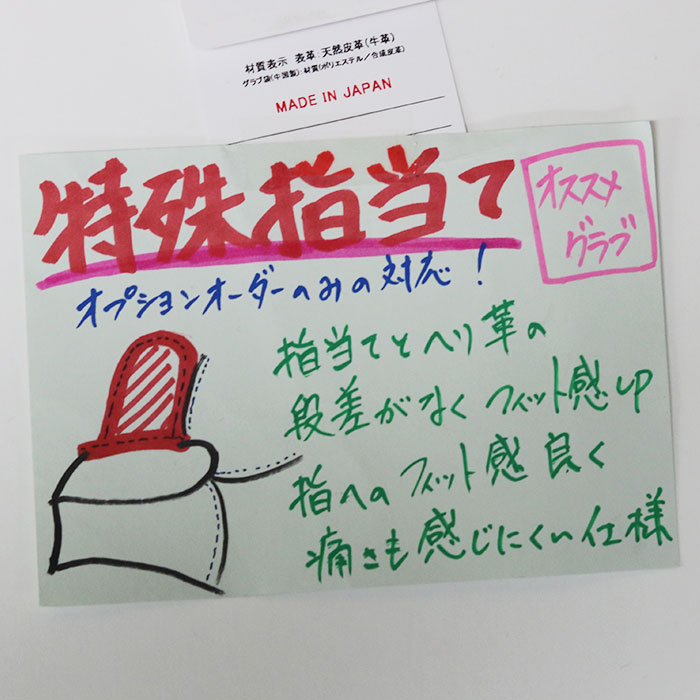 材質表示 表革:天然皮革(牛革)
グラブ袋(中国製):材質(ポリエステル/合成皮革)
MADE IN JAPAN
特殊指当て
オススメ
グラブ
オプションオーダーのみの対応!
指当てとヘリ革の
段差がなくフィット感UP
指へのフィット感良く
痛さも感じにくい仕様